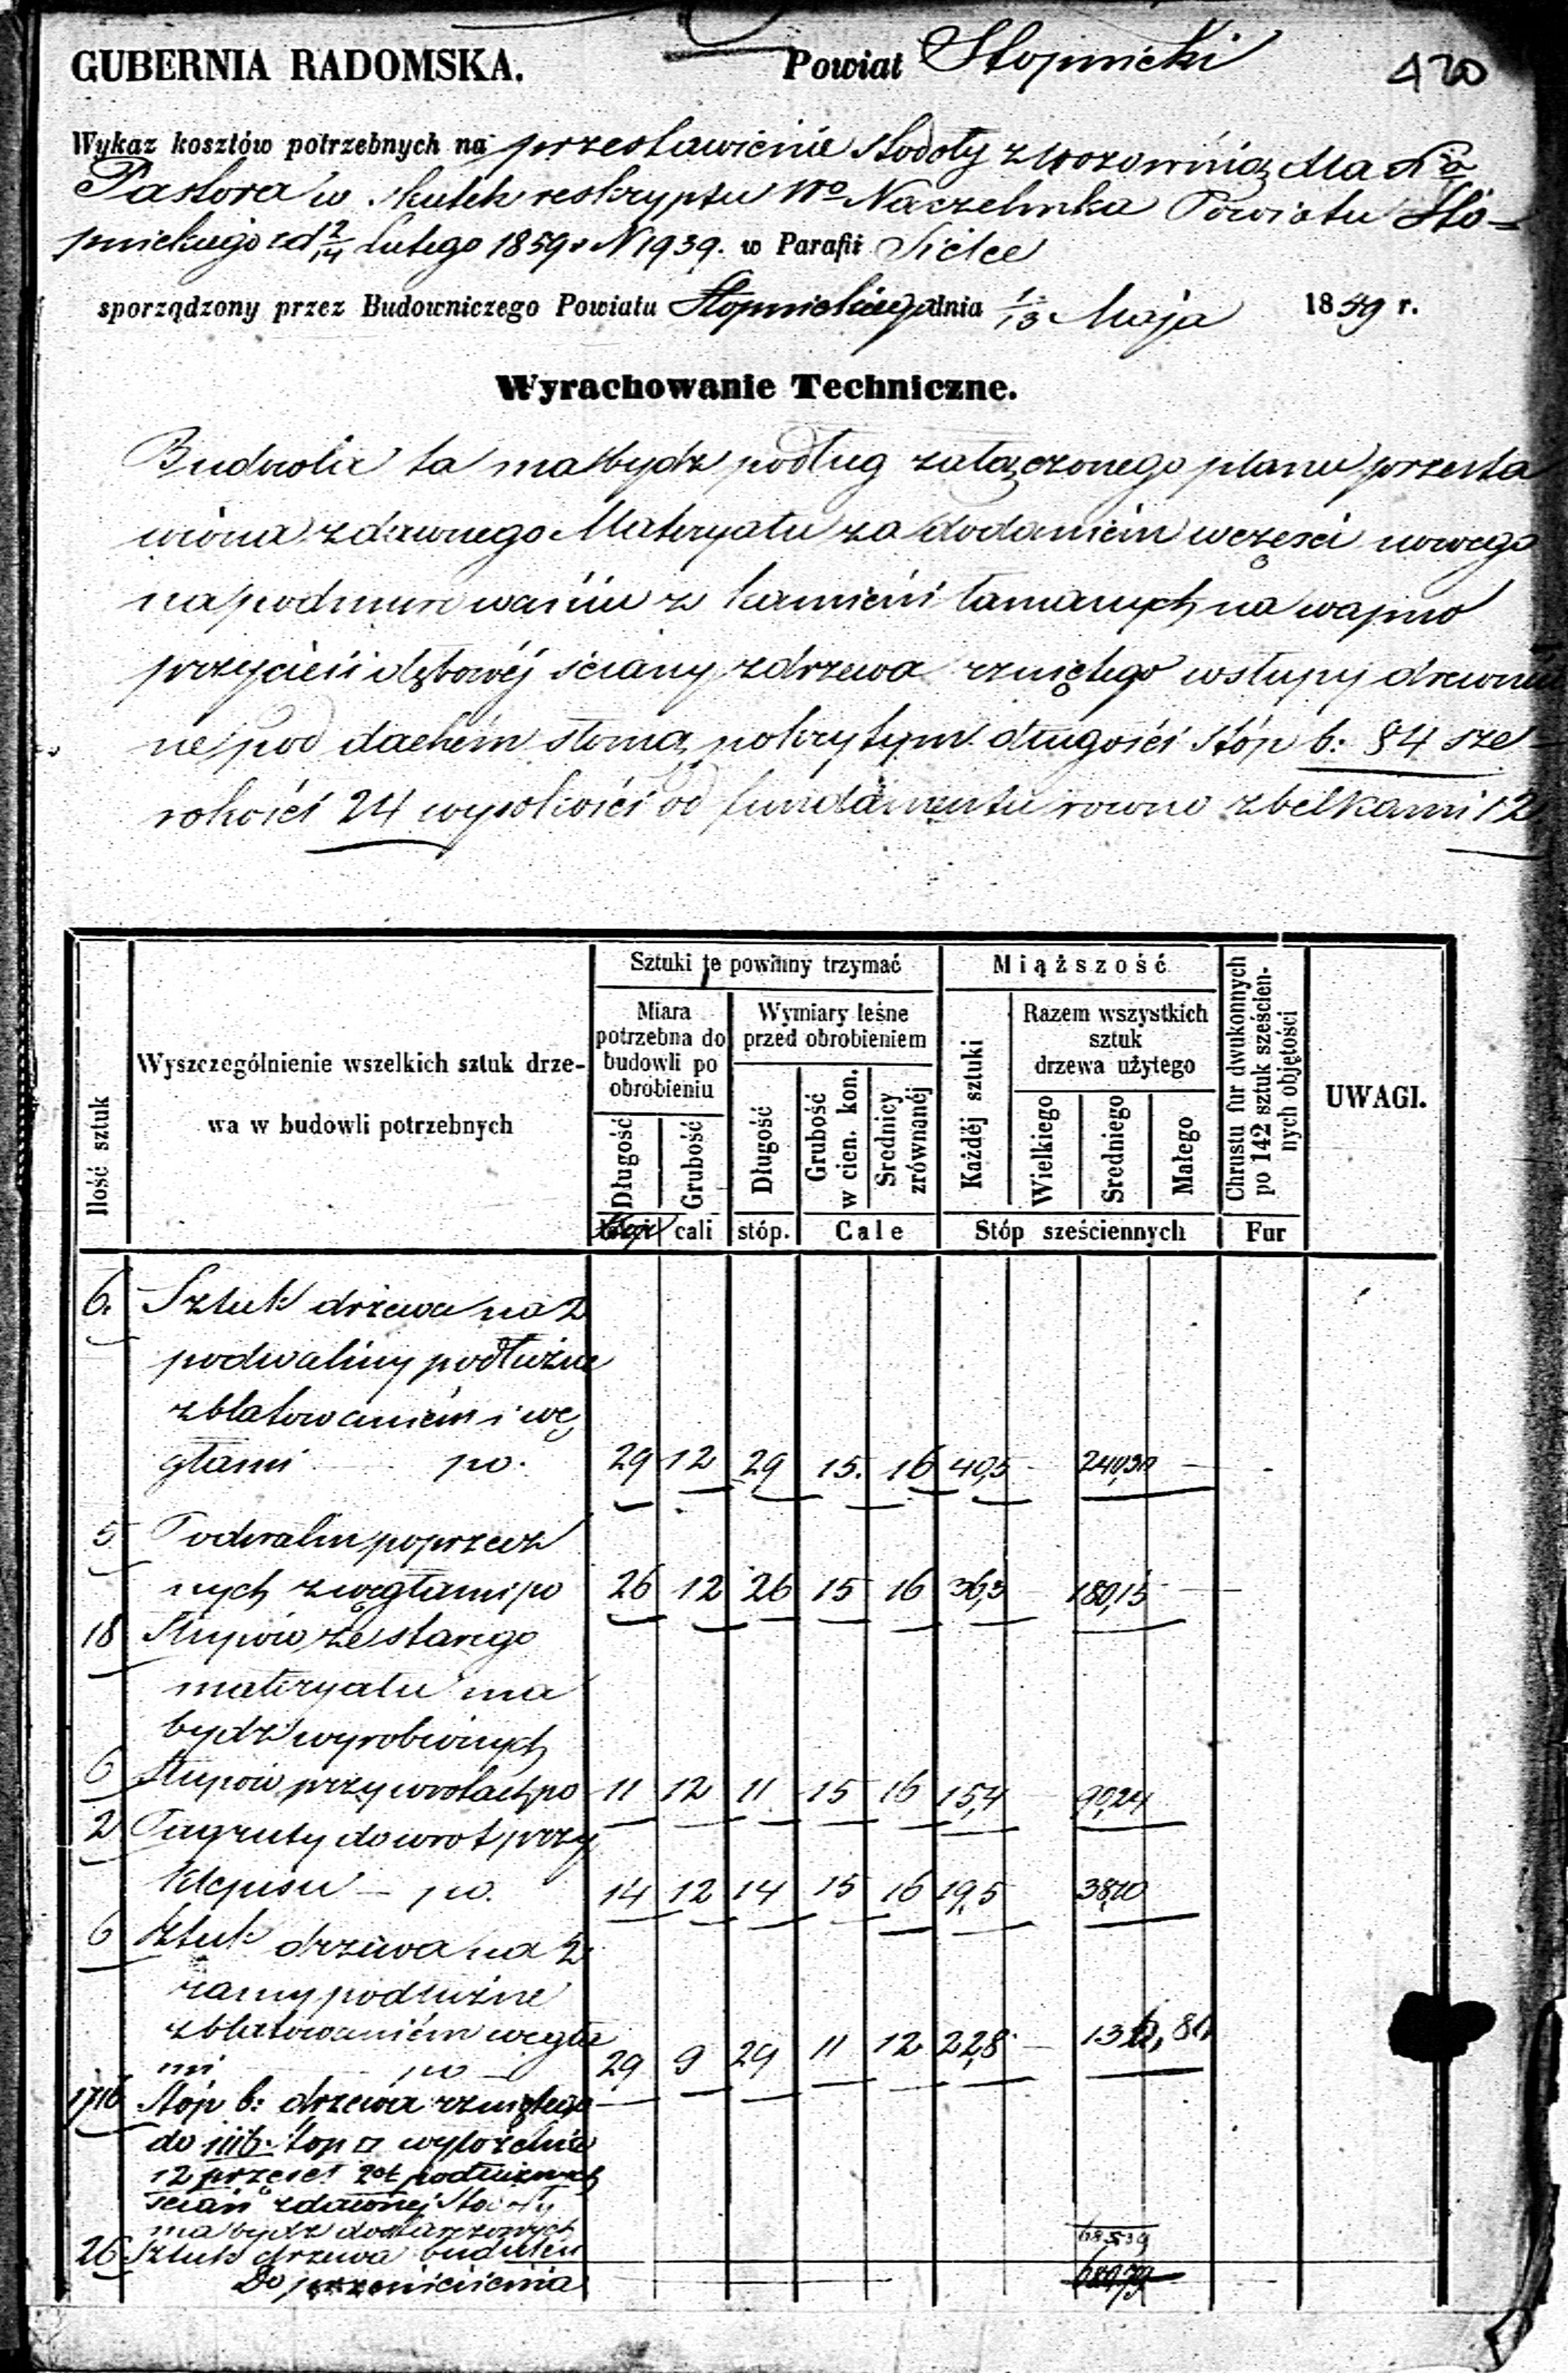 GUBERNIA RADOMSKA. Powiat Stopnicki 420
Wykaz kosztów potrzebnych na przestawienie Stodoły z Wozownią dla
Pastora w skutek reskryptu Wo Naczelnika Powiatu Sto-
pnickiego z d 2/14 Lutego 1859 r N 1939. w Parafii Sielce
sporządzony przez Budowniczego Powiatu Stopnickiego dnia 1/13 Maja 1859 r.
Wyrachowanie Techniczne.
Budowla ta ma bydz podług załączonego planu przesta
wiona z dawnego Materyału za dodaniem w części nowego
na podmurowaniu z kamieni łamanych na wapno
przycieśi dębowéj ściany z drzewa rzniętego w słupy drewnia
ne pod dachem słomą pokrytym długości stóp b: 84 sze-
rokości 24 wysokości od fundamentu rowno z belkami 12
Ilość sztuk
Wyszczególnienie wszelkich sztuk drze-
wa w budowli potrzebnych
Sztuki te powinny trzymać
Miara potrzebna do budowli po obrobieniu
Wymiary leśne przed obrobieniem
Długość Grubość Długość Grubość w cien. kon. Srednicy zrównanéj
cali stóp. Cale
Miąższość
Każdéj sztuki
Razem wszystkich sztuk drzewa użytego
Wielkiego Sredniego Małego
Stóp sześciennych
Chrustu fur dwukonnych po 142 sztuk sześciennych objętości
Fur
UWAGI.
6. Sztuk drzewa na 2
podwaliny podłużne
z blatowaniem i wę
głami po. 29 12 29 15. 16 40,5
5 Podwalin poprzecz
nych z węgłami po 26 12 26 15 16 36,3 180,15
18 Słupów ze starego
materyału ma
bydz wyrobionych
6 Słupow przy wrotach po 11 12 11 15 16 15,4 90,24
2 do wrot przy
klepisu — po. 14 12 14 15 16 19,5
6 Sztuk drzewa na 2
ramy podłużne
z blatowaniém węgła
mi po 29 9 29 11 12 22,8
Stóp b: drzewa rzniętego
do
12 przęseł podłużnych
ścian z dawnej Stodoły
ma bydz dostarczonych
26 Sztuk drzewa budulcu
Do przeniesienia